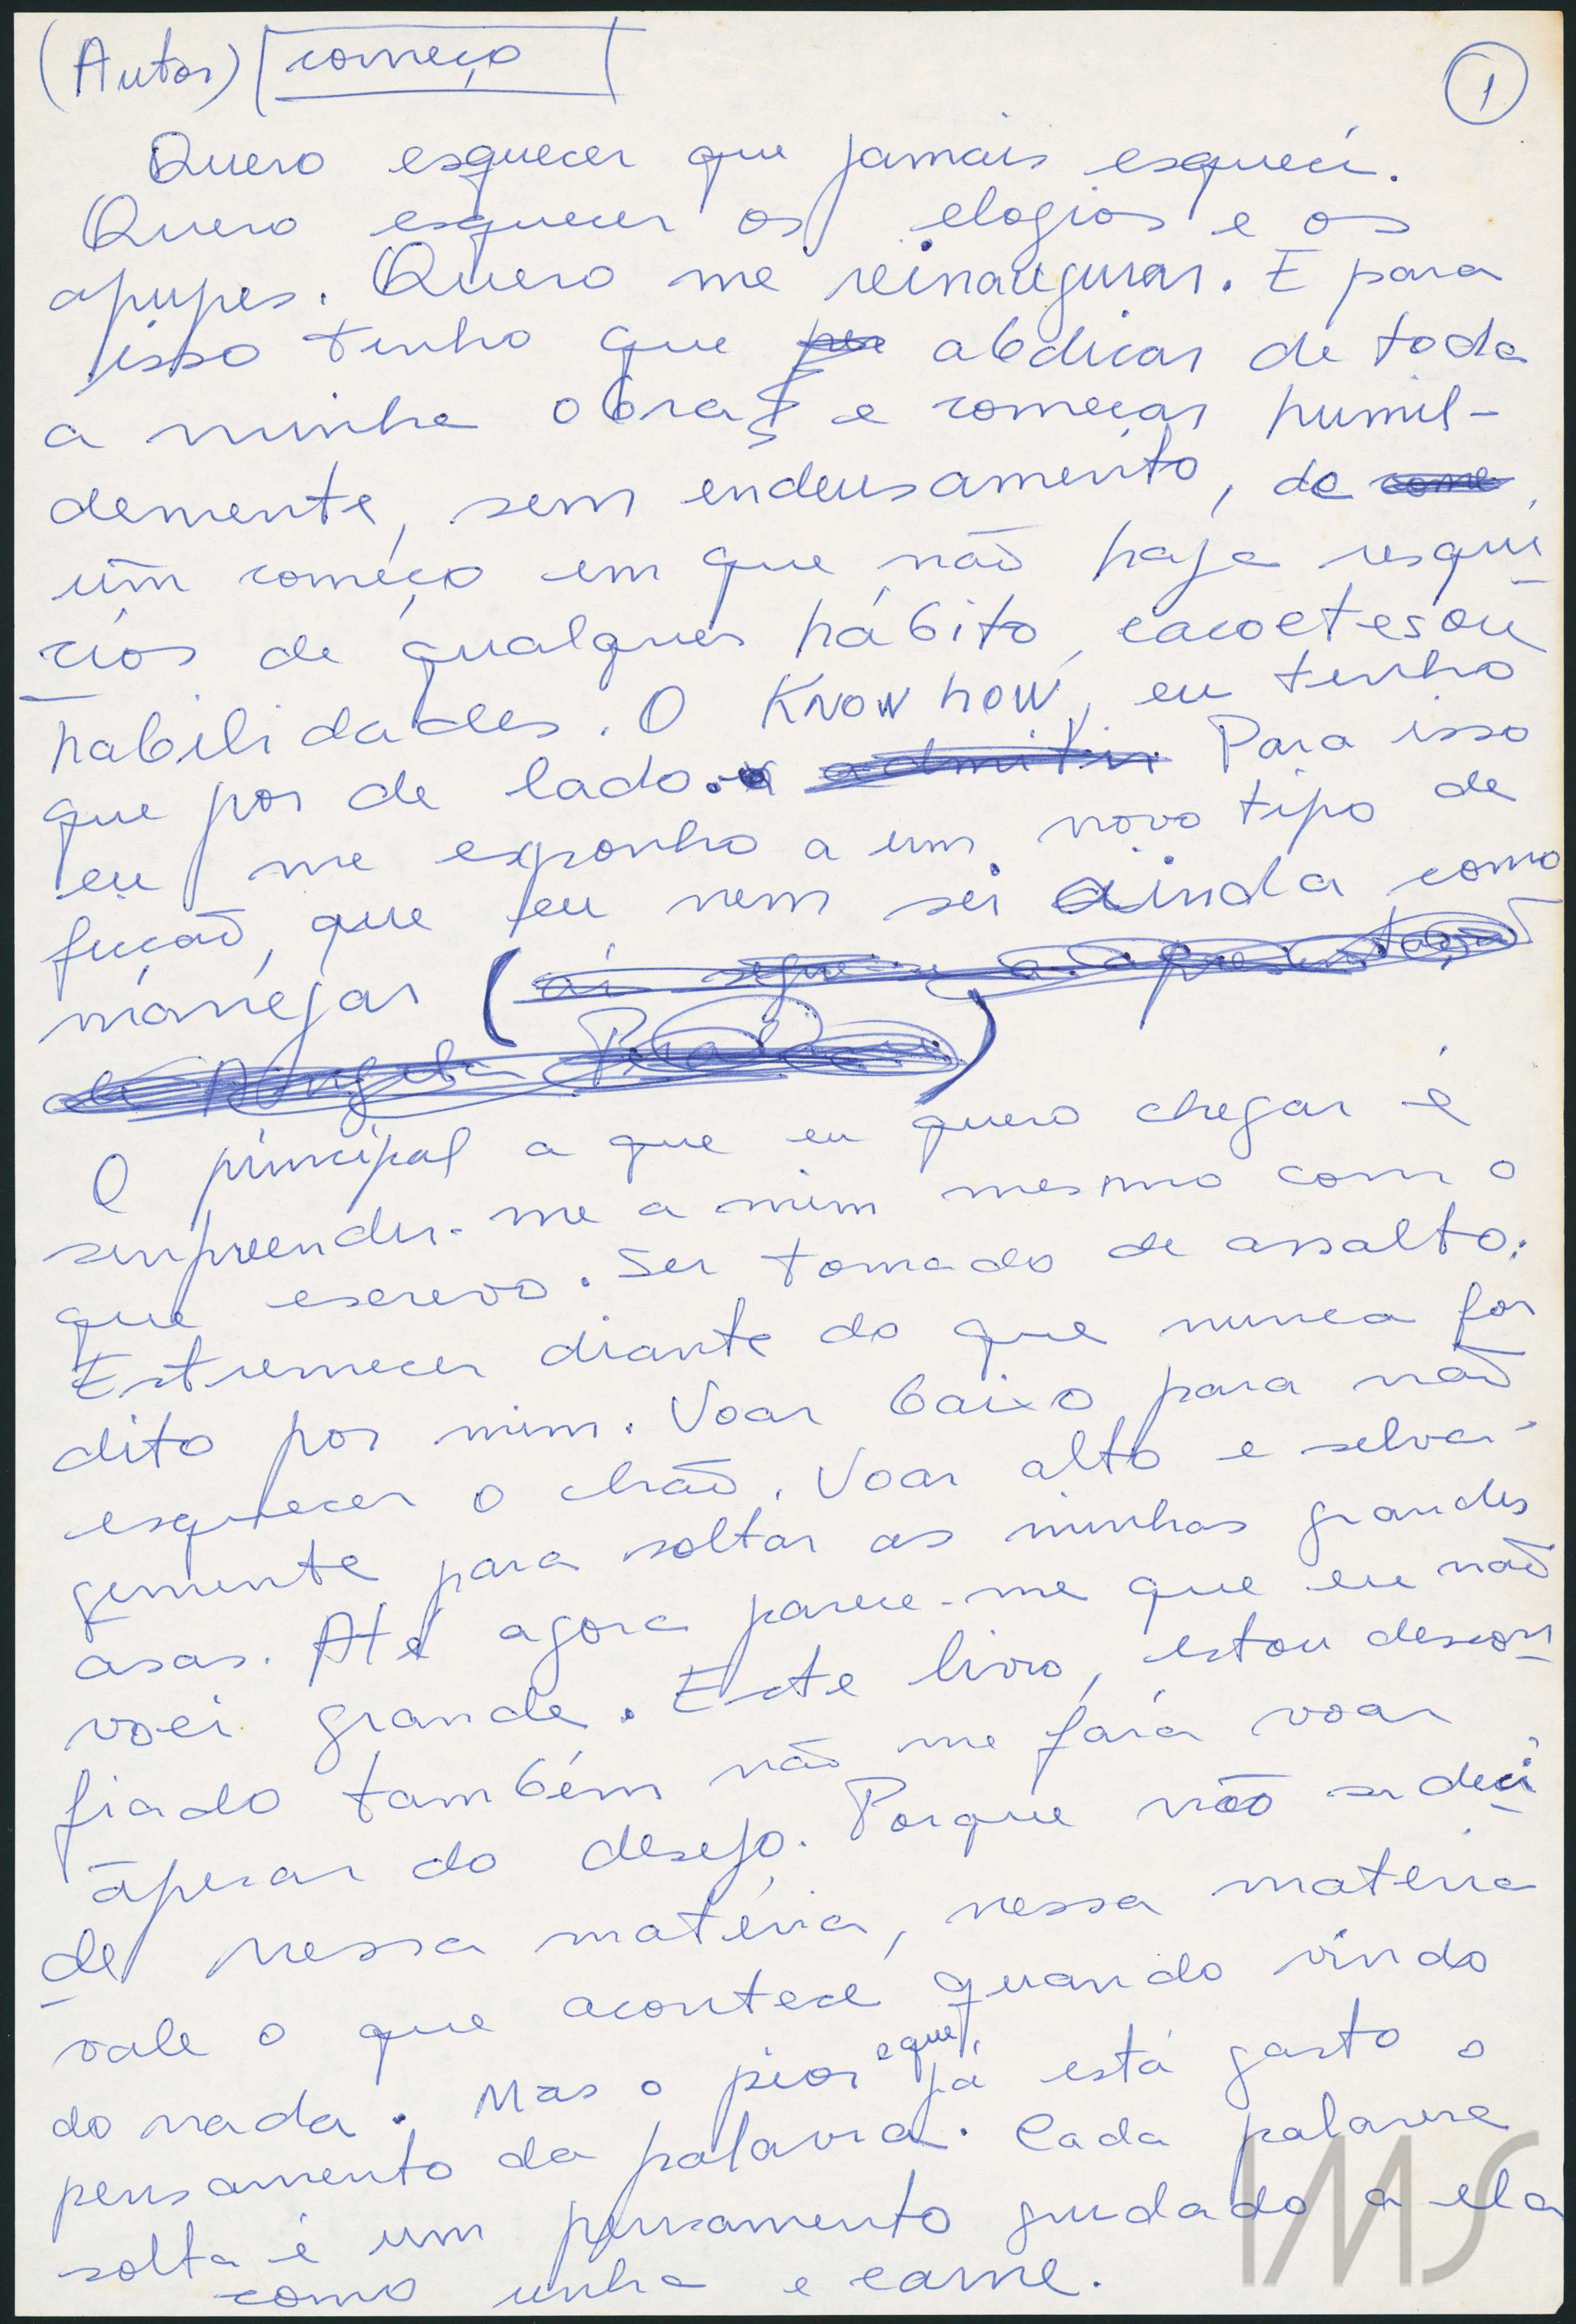 (Autor) começo
1
Quero esquecer que jamais esqueci.
Quero esquecer os elogios e os
apupos. Quero me reinaugurar. E para
isso tenho que abdicar de toda
a minha obra e começar humil-
demente, sem endeusamento, de
um começo em que não haja resquí
cios de qualquer hábito, cacoetes ou
habilidades. O Know how, eu tenho
que por de lado. admitir Para isso
eu me exponho a um novo tipo de
ficção, que eu nem sei ainda como
manejar (aí segue-se a apresentação
de Angela Pralini)
O principal a que eu quero chegar é
surpreender-me a mim mesmo com o
que escrevo. Ser tomado de assalto.
Estremecer diante do que nunca foi
dito por mim. Voar baixo para não
esquecer o chão. Voar alto e selva-
gemente para soltar as minhas grandes
asas. Até agora parece-me que eu não
voei grande. Este livro, estou descon
fiado também não me fará voar
apesar do desejo. Porque não se deci
de nessa matéria, nessa matéria
vale o que acontece quando vindo
do nada. Mas o pior é que já está gasto o
pensamento da palavra. Cada palavra
solta é um pensamento grudado a ela
como unha e carne.
IMS